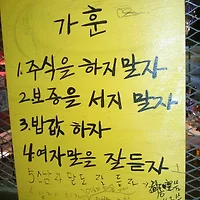 가훈
1.주식은 하지말자
2.보증을 서지 말자
3.밥값 하자
4여자말을 잘듣자
5